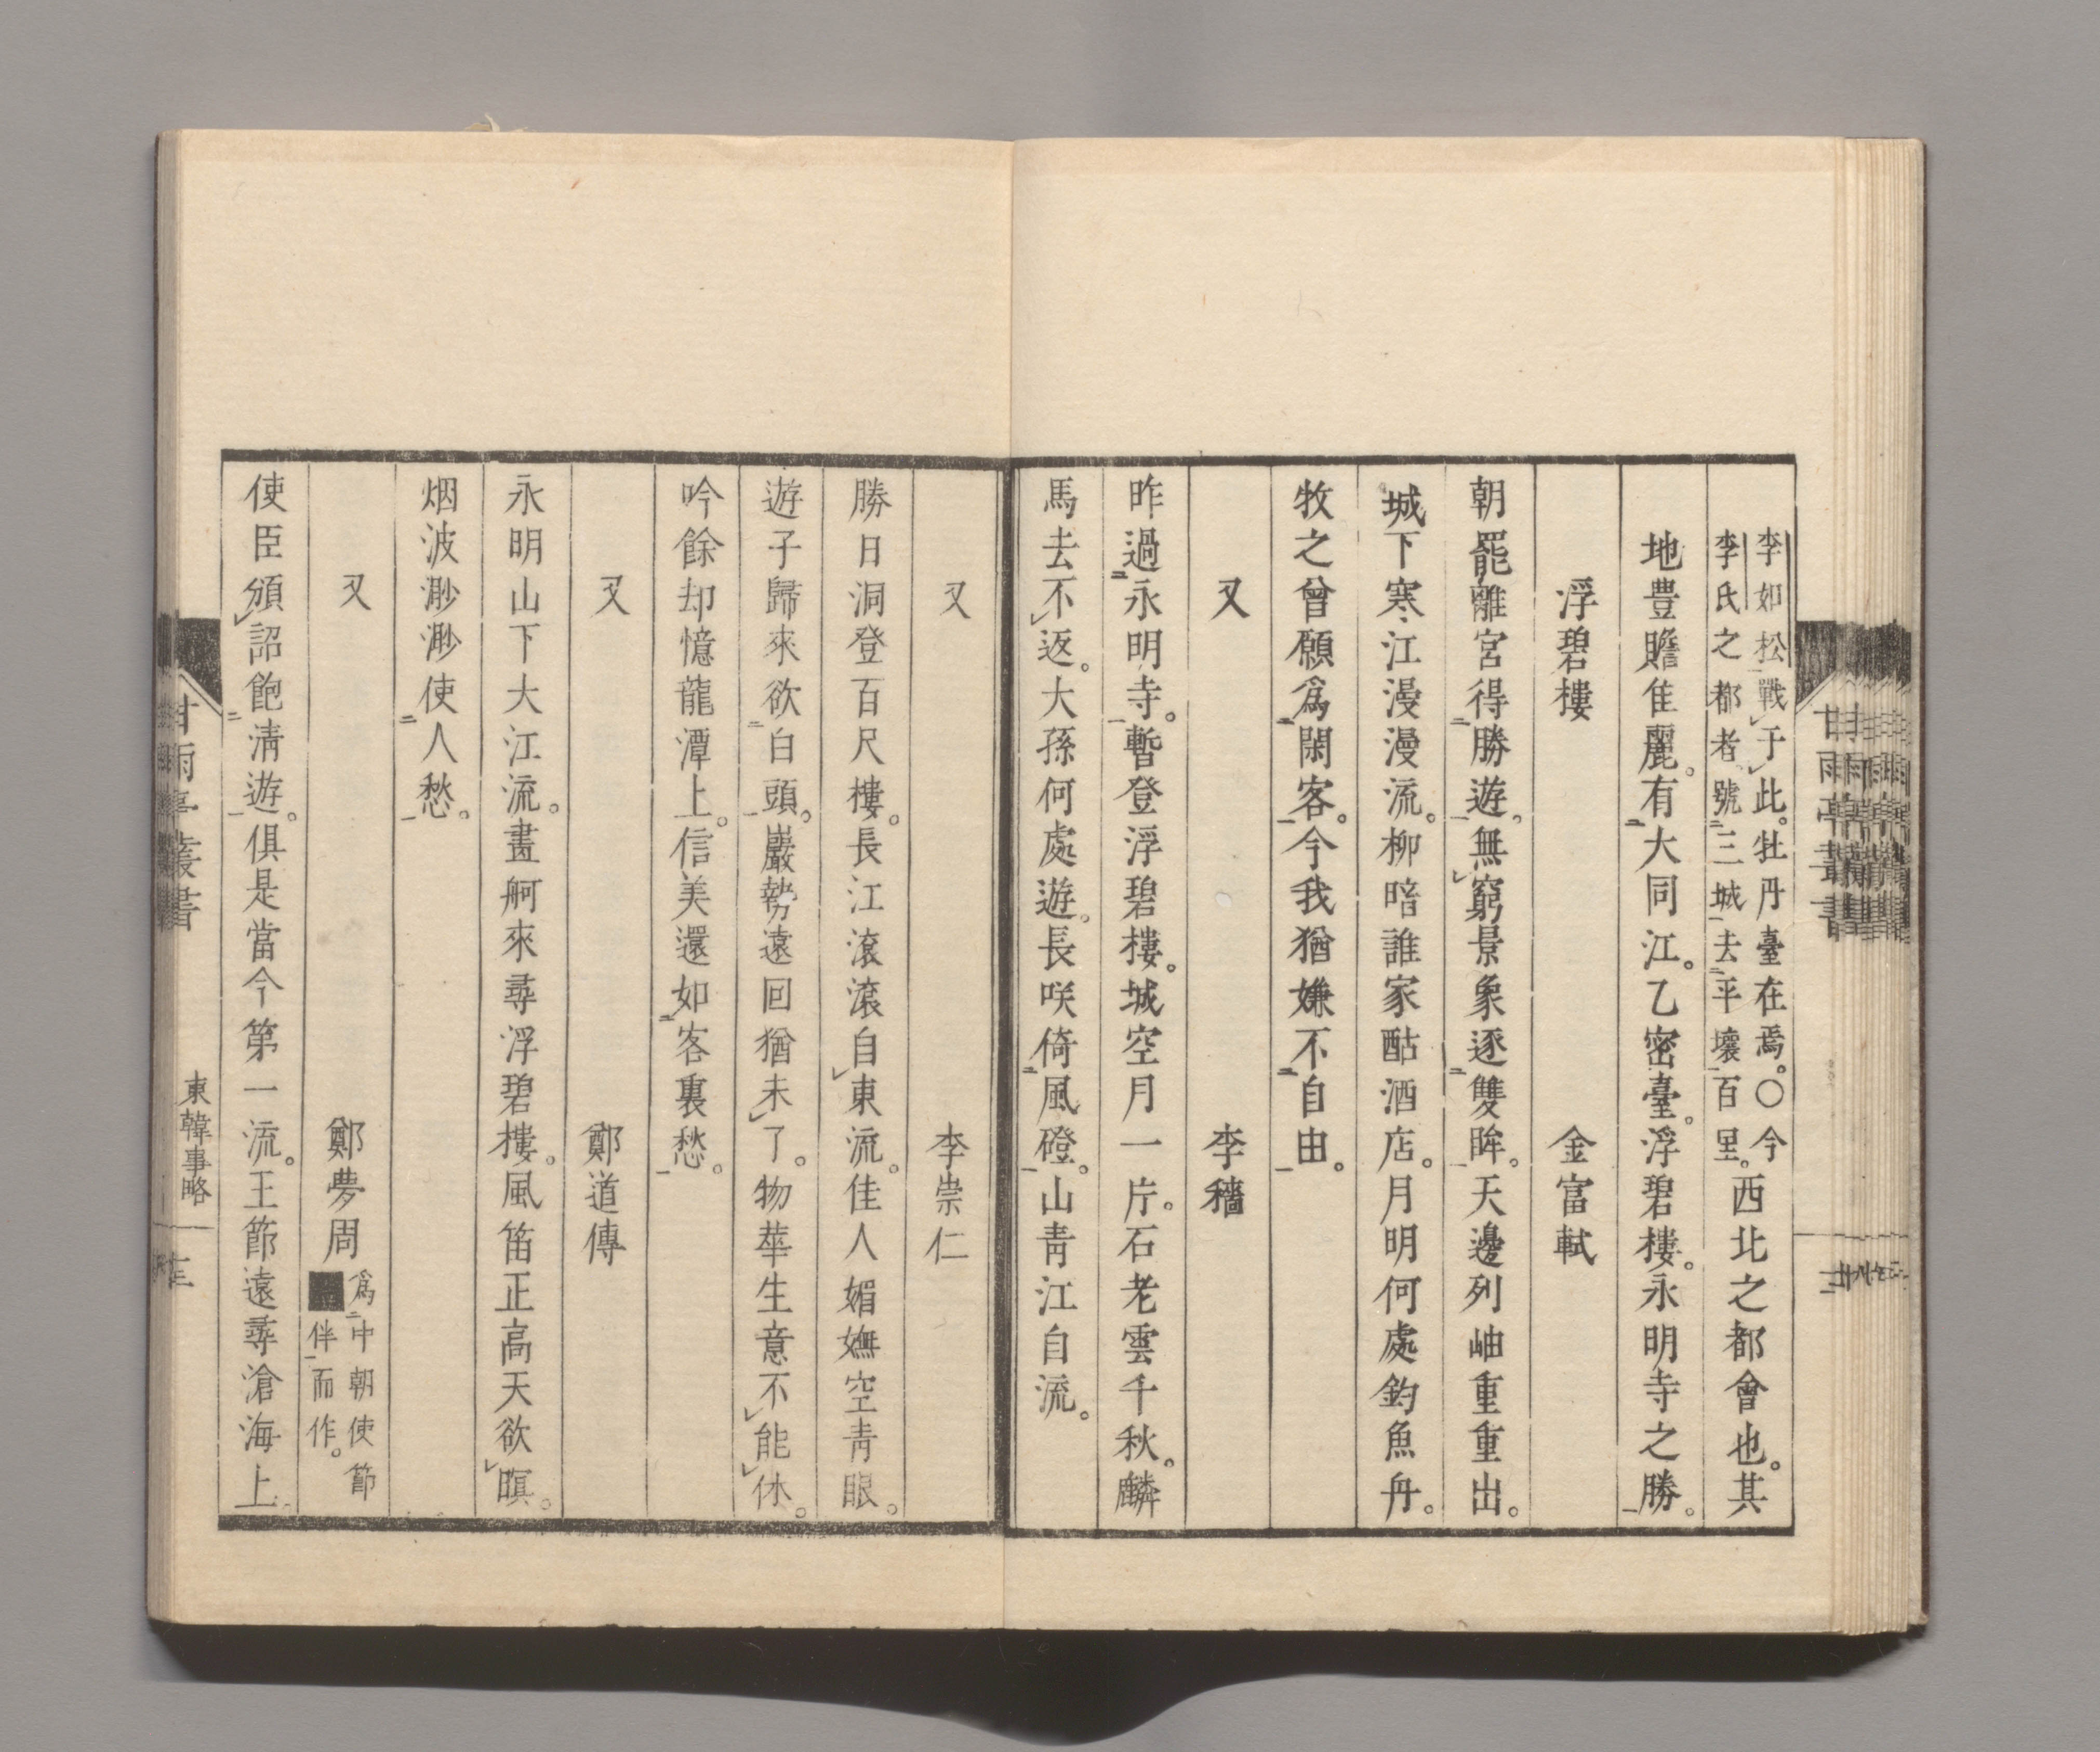 李如松戰于此。牡丹臺在焉。〇今
李氏之都者號三城去平壤百里。
西北之都會也。其
地豊贍佳麗。有大同江。乙密臺。浮碧樓。永明寺之勝。
浮碧樓 金富軾
朝罷離宮得勝遊。無窮景象逐雙眸。天邊列岫重重出。
城下寒江漫漫流。柳暗誰家酤酒店。月明何處釣魚舟。
牧之曾願爲閑客。今我猶嫌不自由。
又 李穡
昨過永明寺。暫登浮碧樓。城空月一片。石老雲千秋。麟
馬去不返。大孫何處遊。長咲倚風磴。山青江自流。
又 李崇仁
勝日洞登百尺樓。長江滾滾自東流。佳人媚嫵空青眼。
遊子歸來欲白頭。巖勢遠回猶未了。物華生意不能休。
吟餘却憶龍潭上。信美還如客裏愁。
又 鄭道傳
永明山下大江流。畫舸來尋浮碧樓。風笛正高天欲暝。
烟波渺渺使人愁。
又 鄭夢周
爲中朝使節
伴而作。
使臣頒詔飽清遊。俱是當今第一流。王節遠尋滄海上。
甘雨亭叢書 東韓事略
甘雨亭叢書